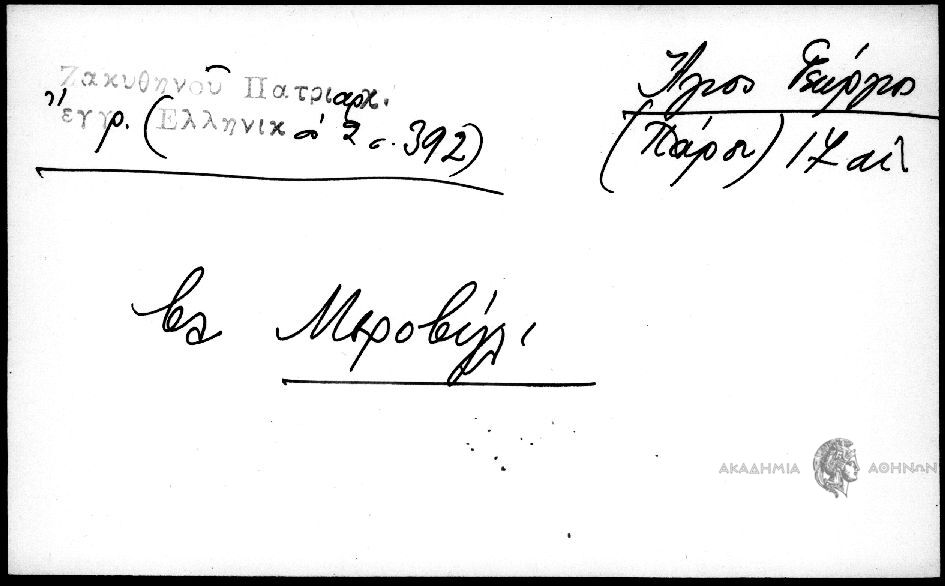 Ζακυθηνοῦ Πατριαρχ.
ἔγγρ. (Ἑλληνικὰ 2 σ. 392)
Ἅγιος Γεώργιος
(Πάρου) 17 αἰ.
βλ. Μεροβίγλι
ΑΚΑΔΗΜΙΑ ΑΘΗΝΩΝ